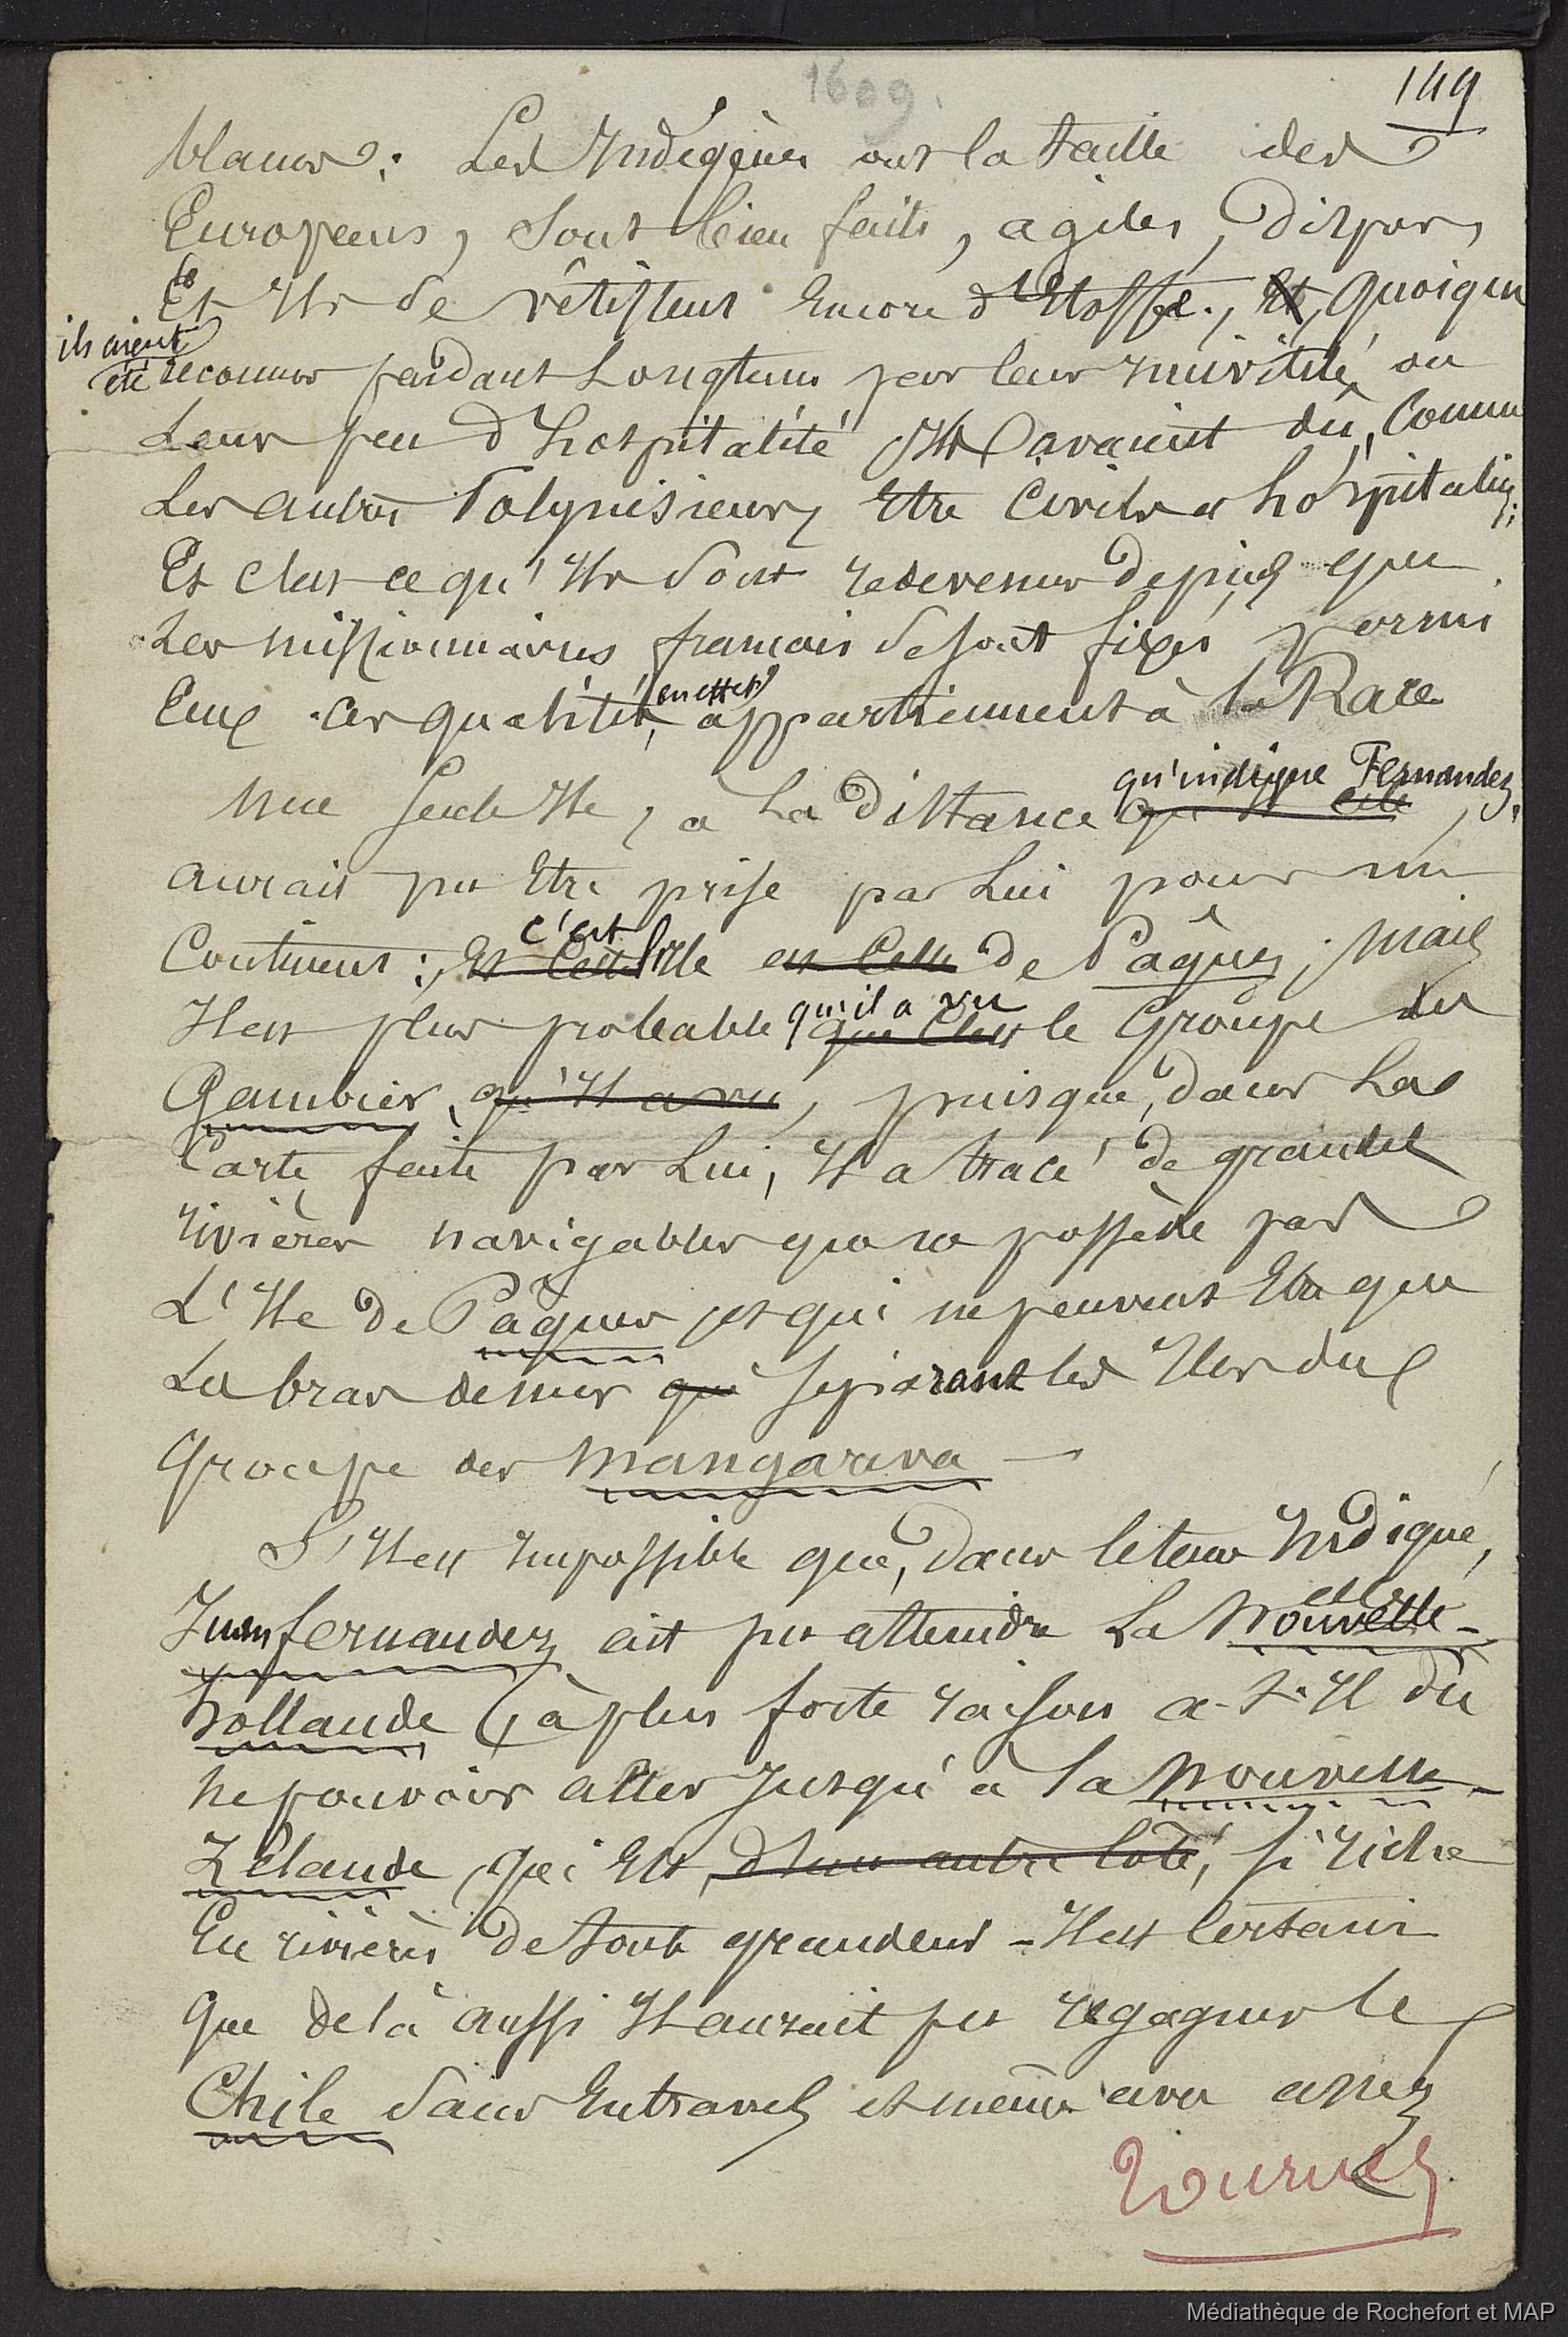 1609.
149
blancs : Les Indigènes ont la taille des
Européens, sont bien faits, agiles, dispos,
Et Ils se vêtissent encore d'Etoffe., Et, quoique
ils aient
été reconnus pendant Longtems par leur
Leur peu d'hospitalité Ils avaient dû, comme
Les autres Polynésiens, Etre civils et hospitaliers;
Et c'est ce qu'Ils sont redevenus depuis que
Les missionnaires français se sont fixés parmi
Eux. Ces qualités, en effet, appartiennent à la Race
qu'indique Fernandez,
Une seule Ile, à La distance que cite,
aurait pu Etre prise par Lui pour un
c'est
Continent :, Et C'est l'Ile est Celle de Pâques; mais
qu'il a vu
Il est plus probable que C'est le Groupe des
Gambier, qu'Il a vu, puisque, dans La
Carte faite par Lui, Il a tracé de grandes
rivières navigables que ne possède pas
L'Ile de Pâques et qui ne peuvent Etre que
Les bras de mer qui séparant les Iles du
Groupe des Mangareva —
S'Il est Impossible que, dans le tems Indiqué,
Juan fernandez ait pu atteindre La Nouvelle-
hollande, à plus forte raison a-t-Il dû
ne pouvoir aller Jusqu'à la Nouvelle-
Zélande, qui Est, d'un autre coté, si riche
En rivières de toute grandeur - Il est Certain
Que de là aussi Il aurait pu regagner le
Chile sans Entraves et même avec assez
tournez
Médiathèque de Rochefort et MAP